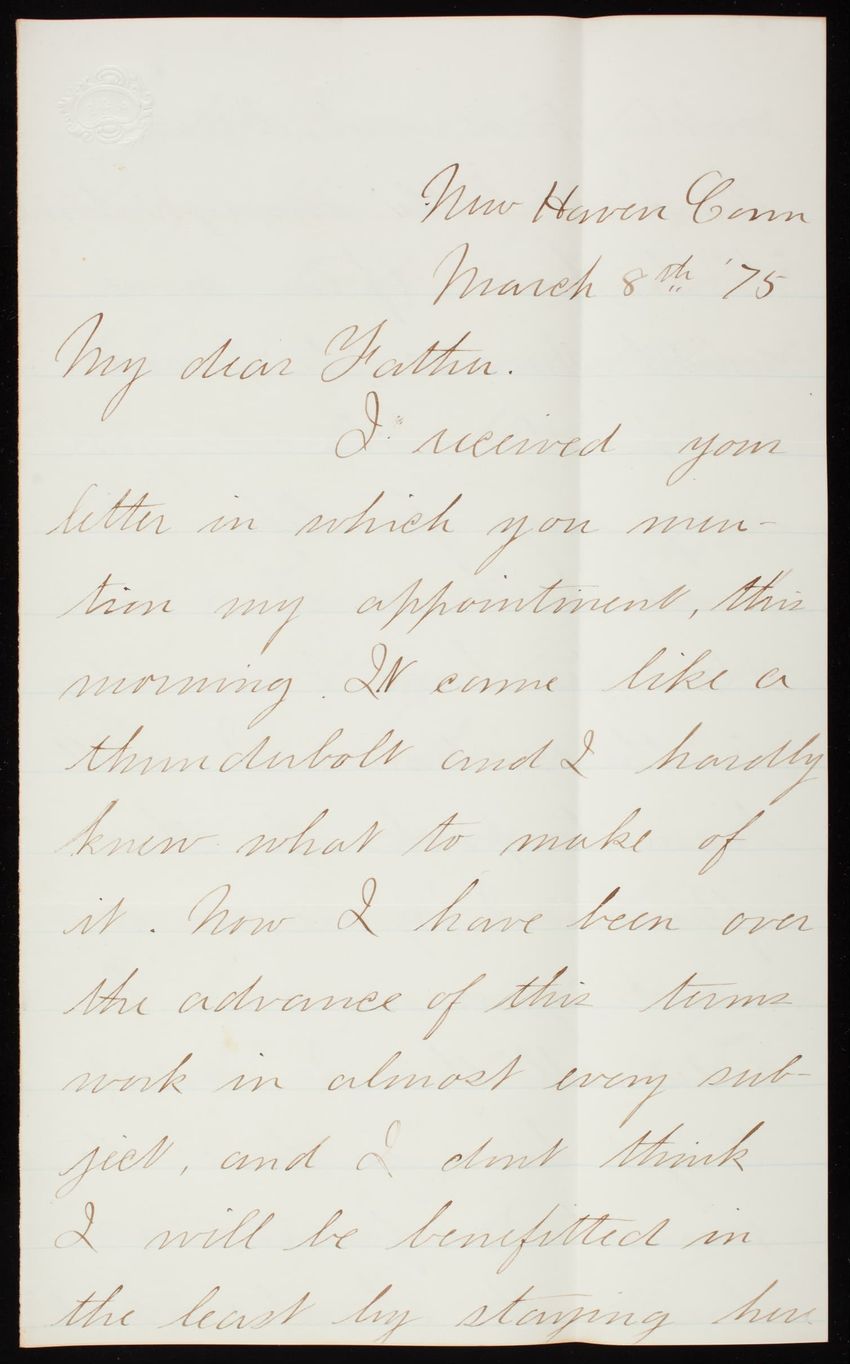 New Haven Conn
March 8th '75
My dear Father.
I received your
letter in which you men-
tion my appointment, this
morning. It came like a
thunderbolt and I hardly
knew what to make of
it. Now I have been over
the advance of this terms
work in almost every sub-
ject, and I dont think
I will be benefitted in
the least by staying here